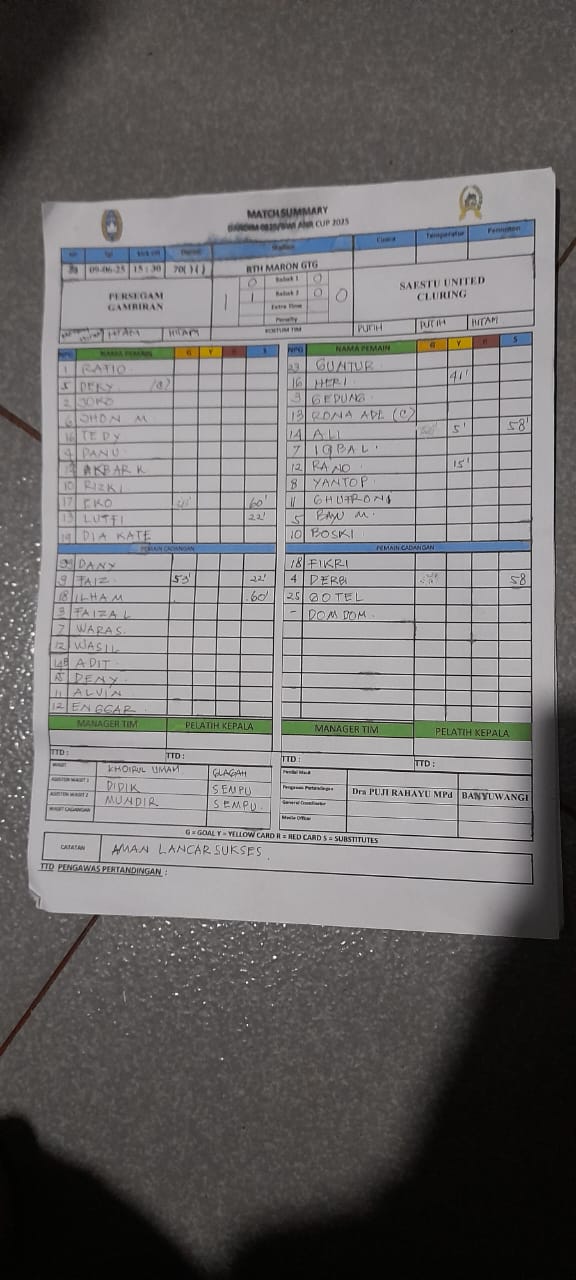 MATCH SUMMARY
CUP 2025
Stadion Cuaca Temperatur Penonton
09-06-25 15:30 70( )( ) RTH MARON GTG
PERSEGAM GAMBIRAN 1 0 Babak 1 0 0 SAESTU UNITED CLURING
1 Babak 2 0
Extra Time
Penalty
HITAM HITAM KOSTUM TIM PUTIH PUTIH HITAM
NPG NAMA PEMAIN G Y R S NPG NAMA PEMAIN G Y R S
1 RATIO 23 GUNTUR
5 DEKY (C) 16 HERI 41'
2 JOKO 3 GEDUNG
6 JHON M 13 RONA ADE (C)
16 TEDY 14 ALI 5' 58'
4 DANU 7 IQBAL
AKBAR K 12 RANO 15'
10 RIZKI 8 YANTOP
17 EKO 60' 11 GHUFRONI
13 LUTFI 22' 5 BAYU M.
19 DIA KATE 10 BOSKI
PEMAIN CADANGAN PEMAIN CADANGAN
DANY 18 FIKRI
9 FAIZ 53' 22' 4 DERBI 58
18 ILHAM 60' 25 OOTEL
3 FAIZAL - DOM DOM
7 WARAS
12 WASIL
ADIT
15 DENY
11 ALVIN
12 ENGGAR
MANAGER TIM PELATIH KEPALA MANAGER TIM PELATIH KEPALA
TTD : TTD : TTD : TTD :
WASIT KHOIRUL UMAM GLAGAH
ASISTEN WASIT 1 DIDIK SEMPU Pengawas Pertandingan Dra PUJI RAHAYU MPd BANYUWANGI
ASISTEN WASIT 2 MUNDIR SEMPU General Coordinator
WASIT CADANGAN Media Officer
G = GOAL Y = YELLOW CARD R = RED CARD S = SUBSTITUTES
CATATAN AMAN LANCAR SUKSES.
TTD PENGAWAS PERTANDINGAN :